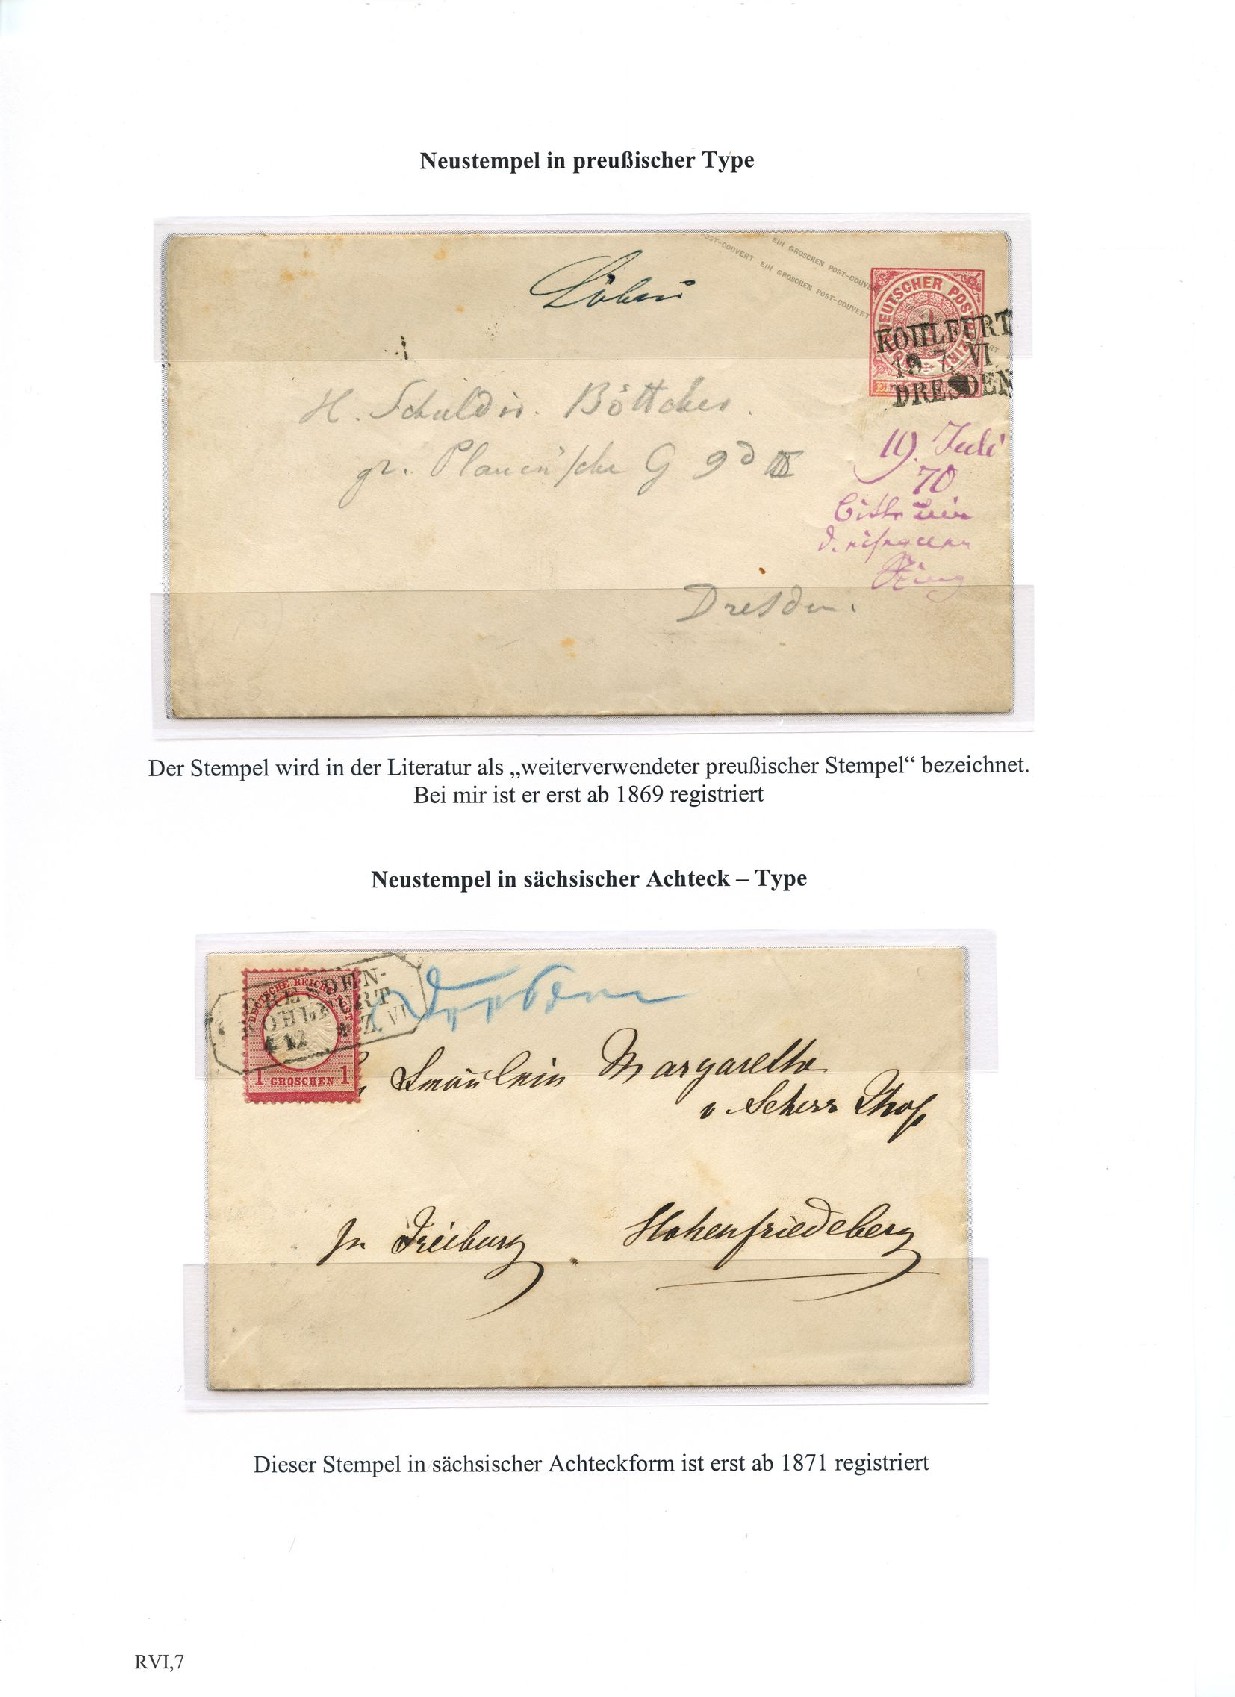 Neustempel in preußischer Type
POST-COUVERT EIN GROSCHEN POST-COUVERT
EIN GROSCHEN POST-COUVERT
DEUTSCHER POST
KOHLFURT
19 Z. VI
DRESDEN
H. Schuldir. Böttcher.
gr. Plauen'sche G 9d III
19. Juli
70
Dresden.
Der Stempel wird in der Literatur als „weiterverwendeter preußischer Stempel“ bezeichnet.
Bei mir ist er erst ab 1869 registriert
Neustempel in sächsischer Achteck – Type
Dresden
DRESDEN-
KOHLFURT
Z. VI
1 GROSCHEN 1
Fräulein Margarethe
v. Scherr Thoss
in Freiburg. Hohenfriedeberg
Dieser Stempel in sächsischer Achteckform ist erst ab 1871 registriert
RVI,7